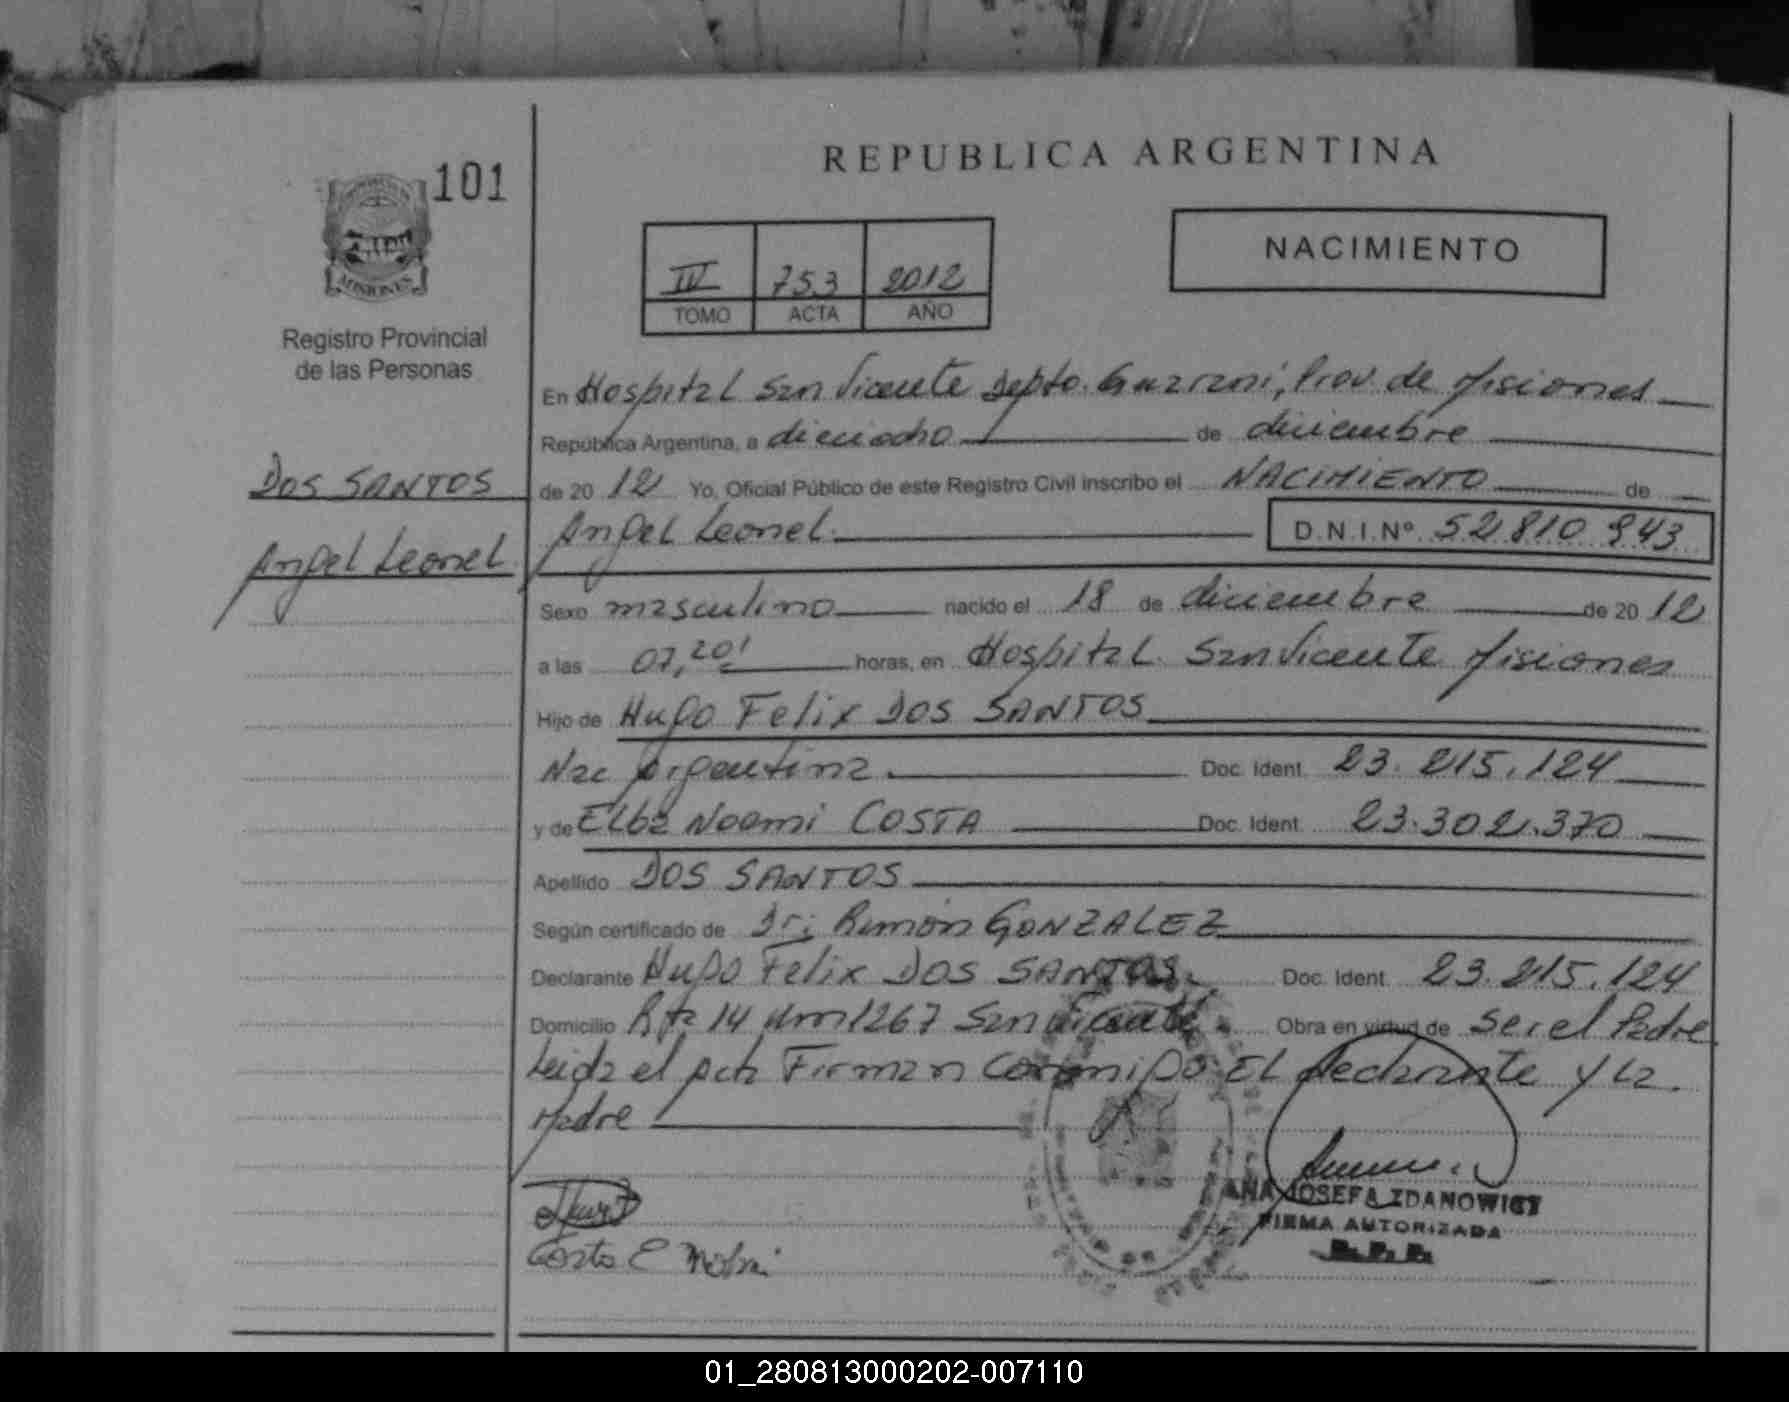 101
REPUBLICA ARGENTINA
NACIMIENTO
MISIONES
IV 753 2012
TOMO ACTA AÑO
Registro Provincial
de las Personas
DOS SANTOS
Angel Leonel
En Hospital San Vicente Depto. Guarani, Prov. de Misiones
República Argentina, a dieciocho de diciembre
de 20 12 Yo, Oficial Público de este Registro Civil inscribo el NACIMIENTO de
Angel Leonel. D.N.I.Nº 52.810.943
Sexo masculino nacido el 18 de diciembre de 20 12
a las 07,20' horas, en Hospital San Vicente Misiones
Hijo de Hugo Felix DOS SANTOS
Nac Argentina. Doc. Ident. 23.215.124
y de Elba Noemi COSTA Doc. Ident. 23.302.370
Apellido DOS SANTOS
Según certificado de Dr; Ramón GONZALEZ
Declarante Hugo Felix DOS SANTOS. Doc. Ident. 23.215.124
Domicilio Rta 14 Km 1267 San Vicente. Obra en virtud de ser el Padre
Leida el Acta Firman Conmigo El declarante y La
Madre
Costa E
ANA JOSEFA ZDANOWICZ
FIRMA AUTORIZADA
R.P.P.
01_280813000202-007110